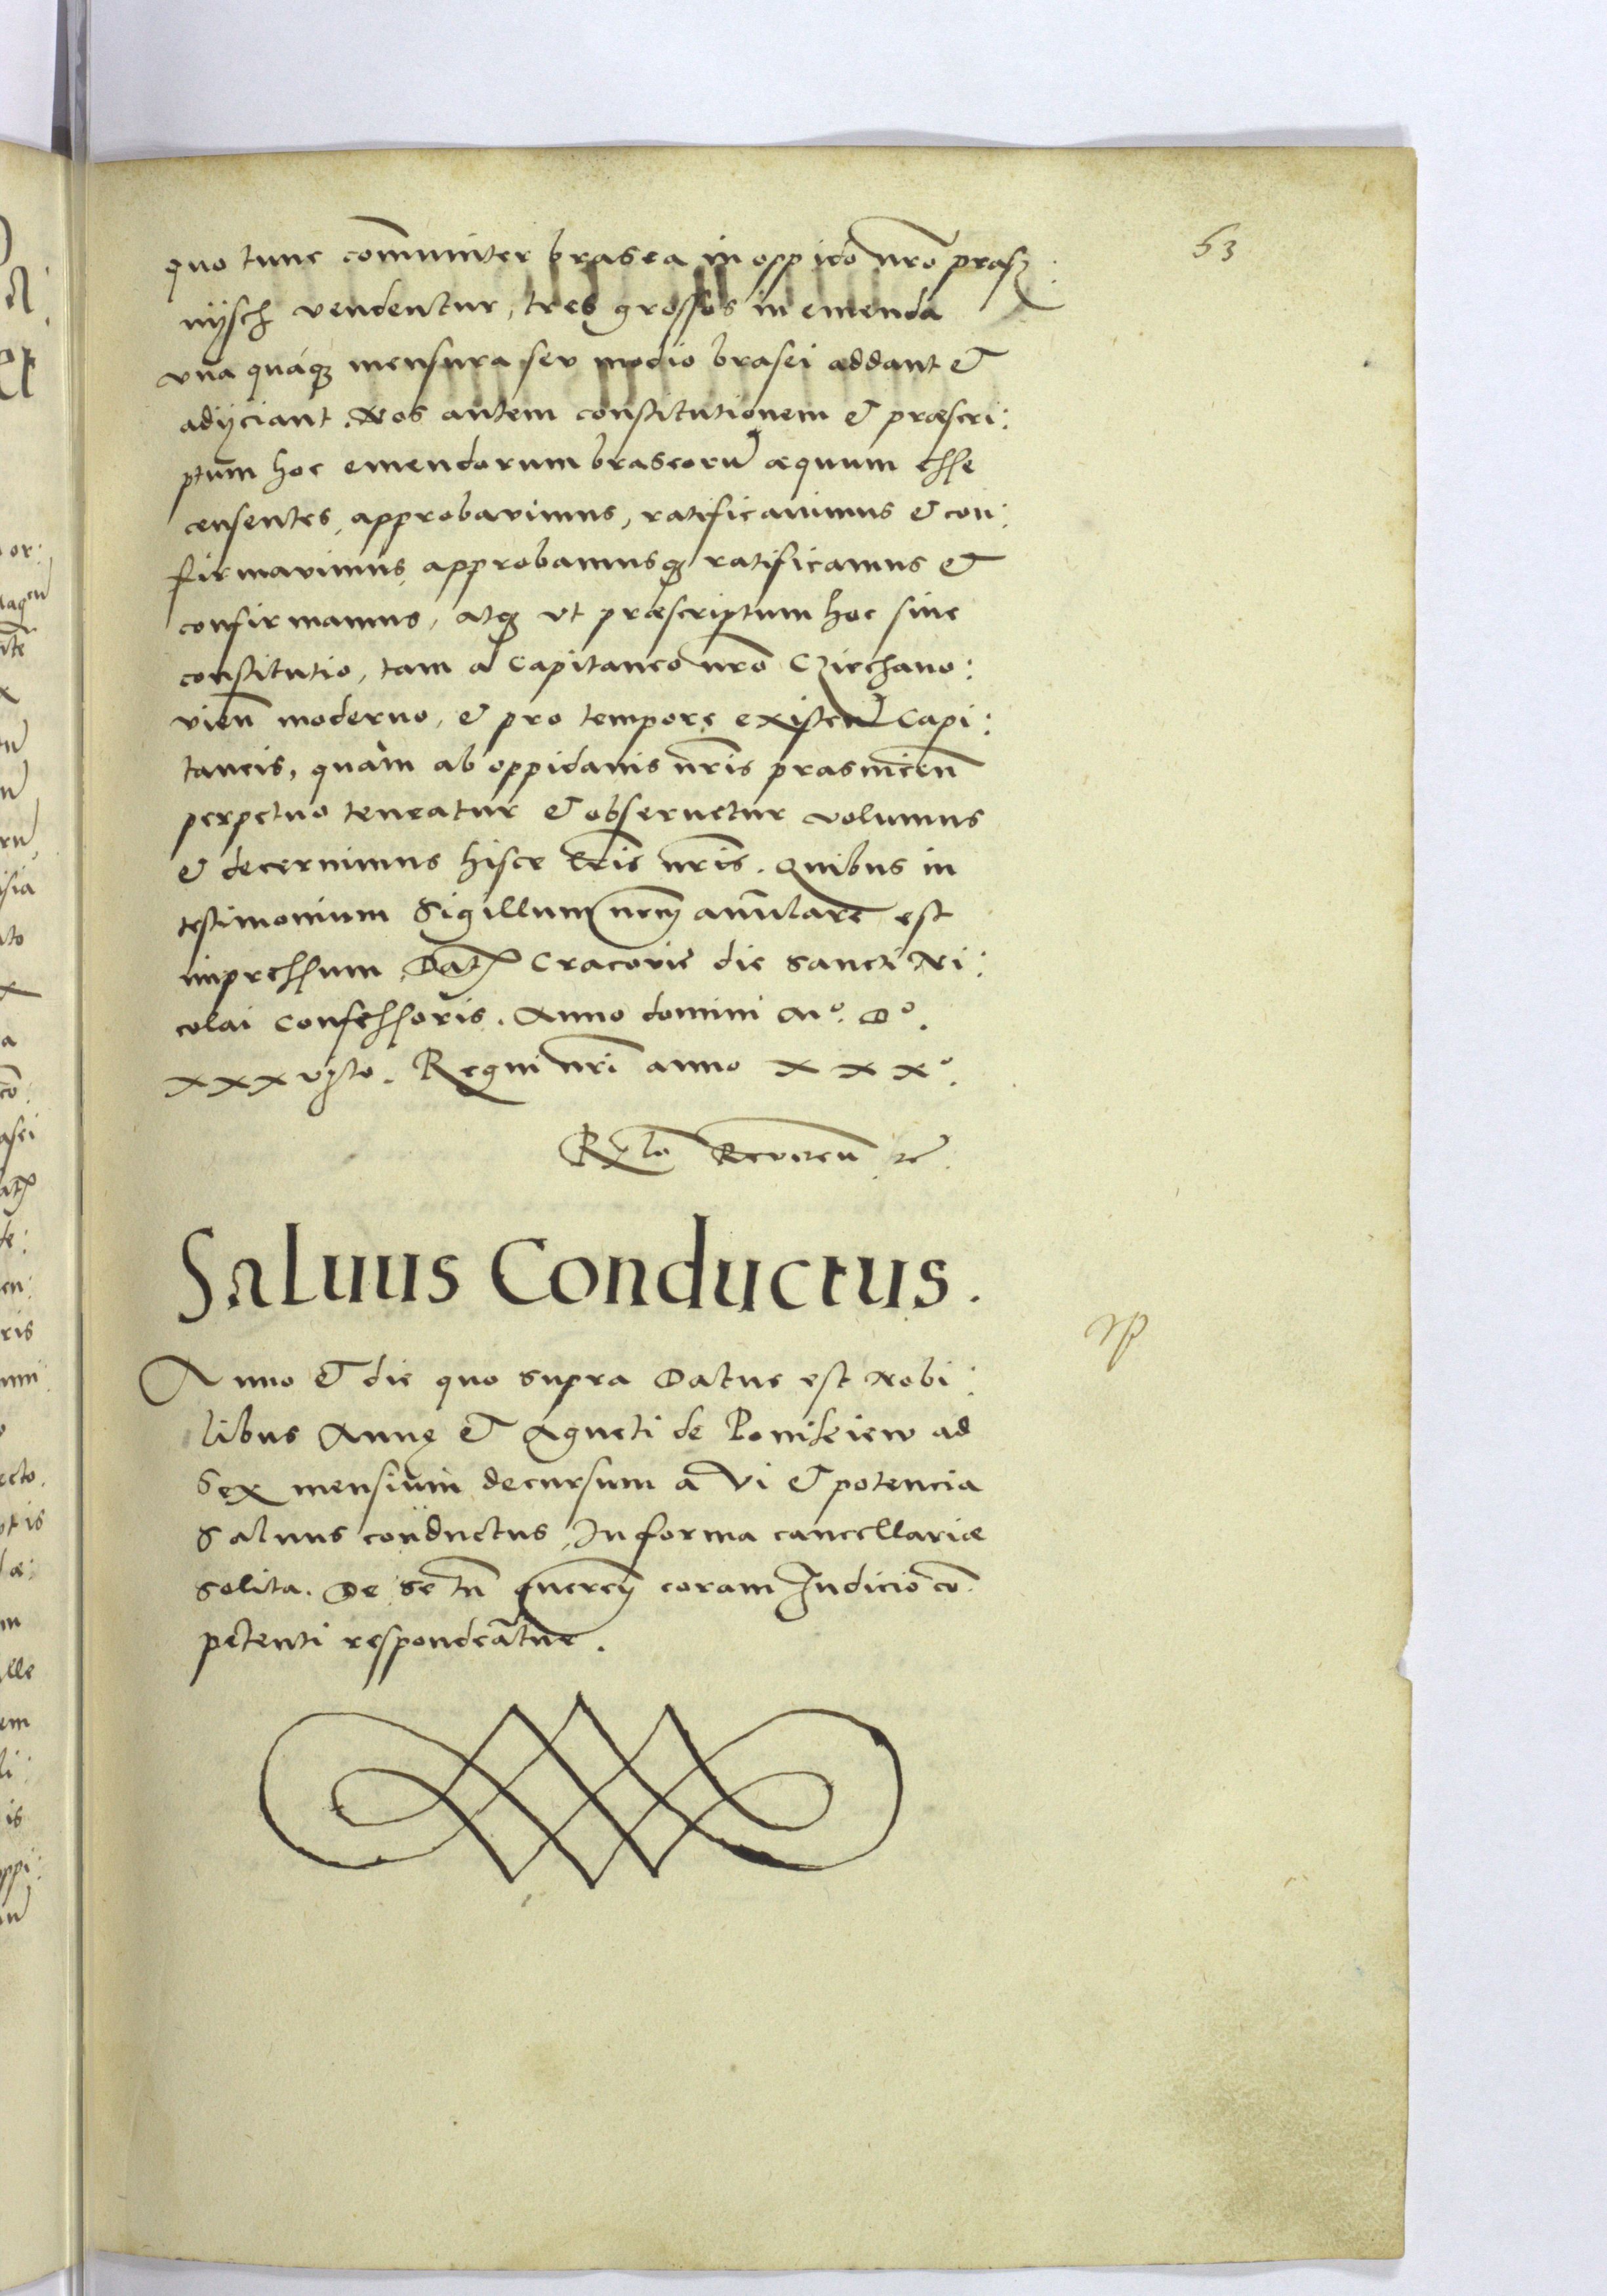 53
quo tunc com̄uniter brasea in oppido nrō prasz
nÿsch vendentur, tres grossos in emenda
vna quáqz mensura seu modio brasei addant &
adÿciant. Nos autem constitutionem & præscri:
ptum hoc emendorum braseorū æquum esse
censentes, approbavimus, ratificauimus & con:
firmavimus, approbamusqz ratificamus &
confirmamus, atqz vt præscriptum hoc siue
constitutio, tam a Capitaneo nrō Cziechano:
vien̄ moderno, & pro tempore existen̄ Capi:
taneis, quàm ab oppidanis nr̄is prasnicen̄
perpetuo teneatur & obseruetur volumus
& decernimus hisce lr̄is nr̄is. Quibus in
testimonium Sigillum nrm̄ annulare est
impressum. Dat Cracovię die sancti Ni:
colai Confessoris. Anno domini Mº. Dº.
xxxvjto. Regni nrī anno xxxº.
Rlō Reveren̄
Saluus Conductus.
Anno & die quo supra Datus est Nobi:
libus Annę & Agneti de Ponikiew ad
Sex mensium decursum a vi & potencia
Saluus conductus, In forma cancellariæ
solita. De se tn̄ coram Iudicio cō
petenti respondeātur.